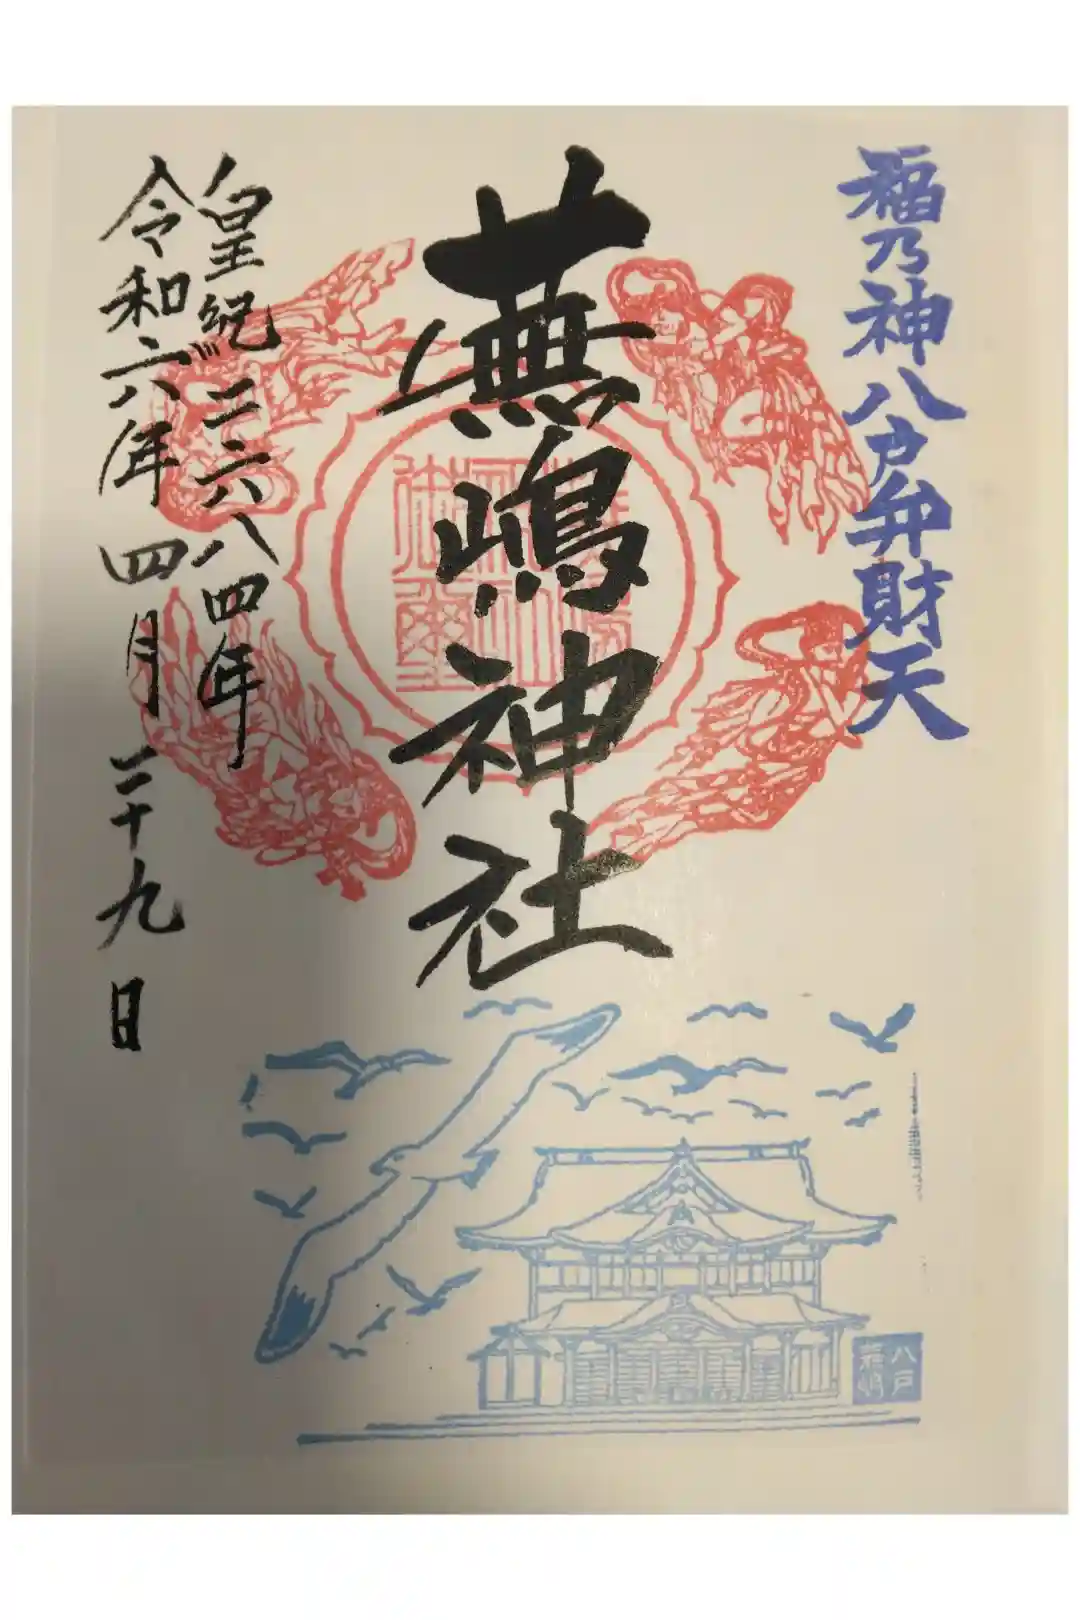 福乃神八戸弁財天
蕪嶋神社
皇紀二六八四年
令和六年四月二十九日
八戸
蕪嶋